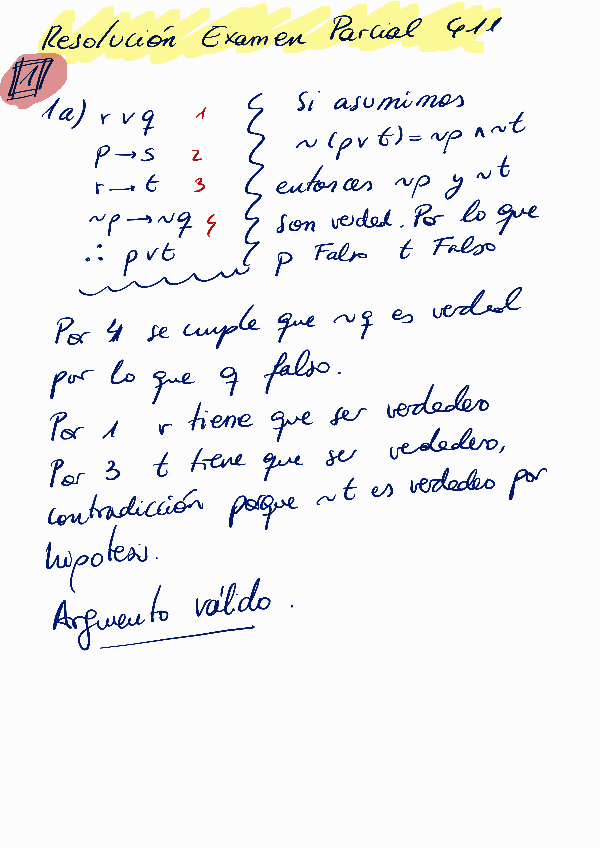 Resolución Examen Parcial 411
1
1a) r ∨ q 1
p → s 2
r → t 3
~p → ~q 4
∴ p ∨ t
Si asumimos
~(p ∨ t) = ~p ∧ ~t
entonces ~p y ~t
son verdad. Por lo que
p Falso t Falso
Por 4 se cumple que ~q es verdad
por lo que q falso.
Por 1 r tiene que ser verdadero
Por 3 t tiene que ser verdadero,
contradicción porque ~t es verdadeo por
hipotesis.
Argumento válido.